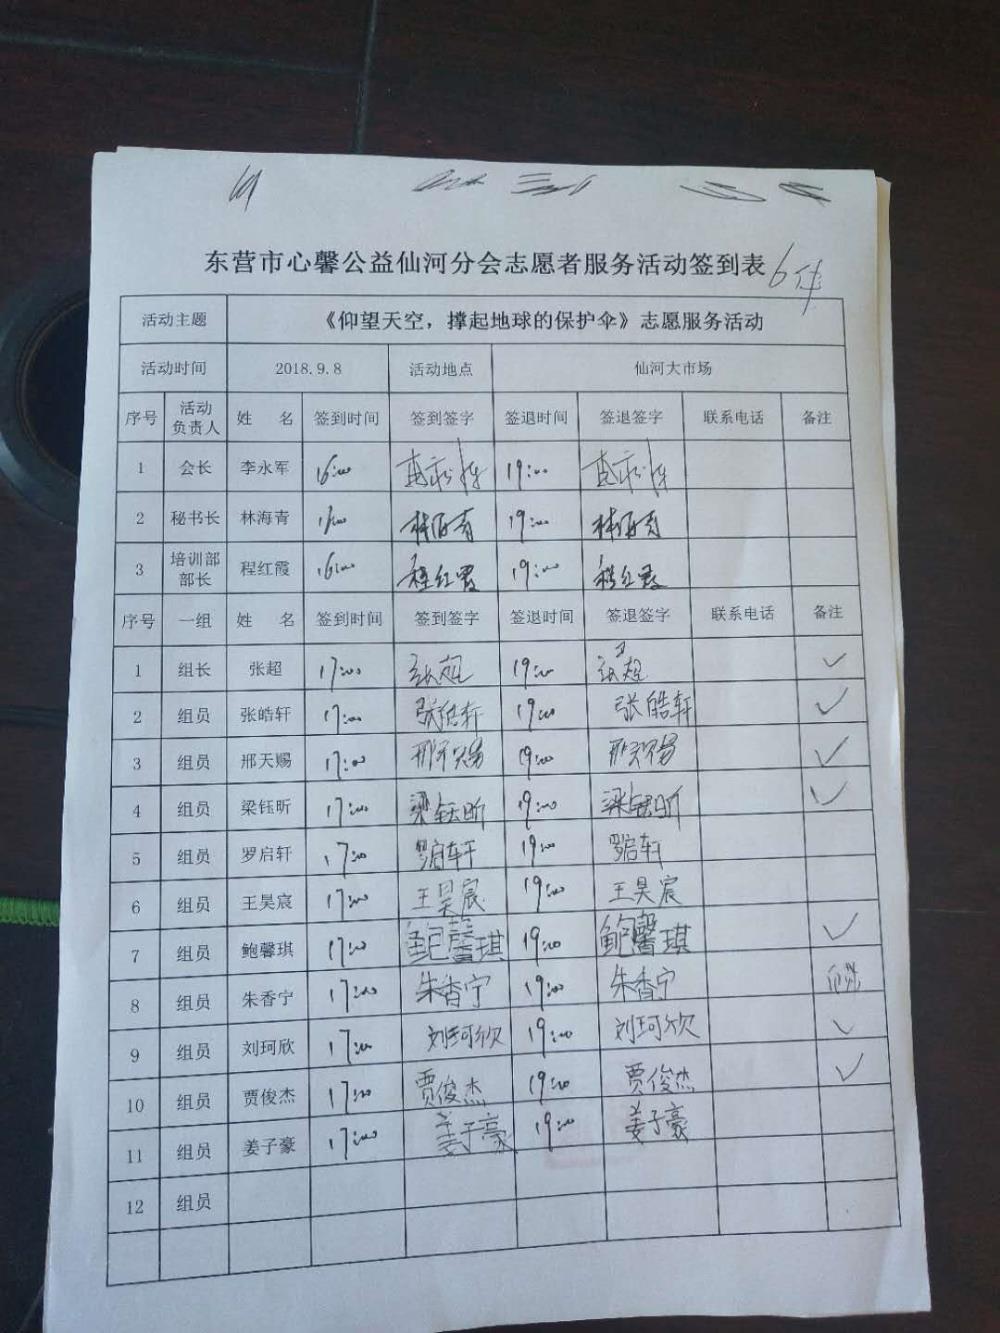 东营市心馨公益仙河分会志愿者服务活动签到表 6件
活动主题 《仰望天空，撑起地球的保护伞》志愿服务活动
活动时间 2018.9.8 活动地点 仙河大市场
序号 活动负责人 姓 名 签到时间 签到签字 签退时间 签退签字 联系电话 备注
1 会长 李永军 16:00 19:00
2 秘书长 林海青 林海青 19:00 林海青
3 培训部部长 程红霞 16:00 程红霞 19:00 程红霞
序号 一组 姓 名 签到时间 签到签字 签退时间 签退签字 联系电话 备注
1 组长 张超 17:00 张超 19:00 张超 ✓
2 组员 张皓轩 17:00 张皓轩 19:00 张皓轩 ✓
3 组员 邢天赐 17:00 邢天赐 19:00 邢天赐 ✓
4 组员 梁钰昕 17:00 梁钰昕 19:00 梁钰昕 ✓
5 组员 罗启轩 17:00 罗启轩 19:00 罗启轩
6 组员 王昊宸 17:00 王昊宸 19:00 王昊宸
7 组员 鲍馨琪 17:00 鲍馨琪 19:00 鲍馨琪 ✓
8 组员 朱香宁 17:00 朱香宁 19:00 朱香宁
9 组员 刘珂欣 17:00 刘珂欣 19:00 刘珂欣 ✓
10 组员 贾俊杰 17:00 贾俊杰 19:00 贾俊杰 ✓
11 组员 姜子豪 17:00 姜子豪 19:00 姜子豪
12 组员